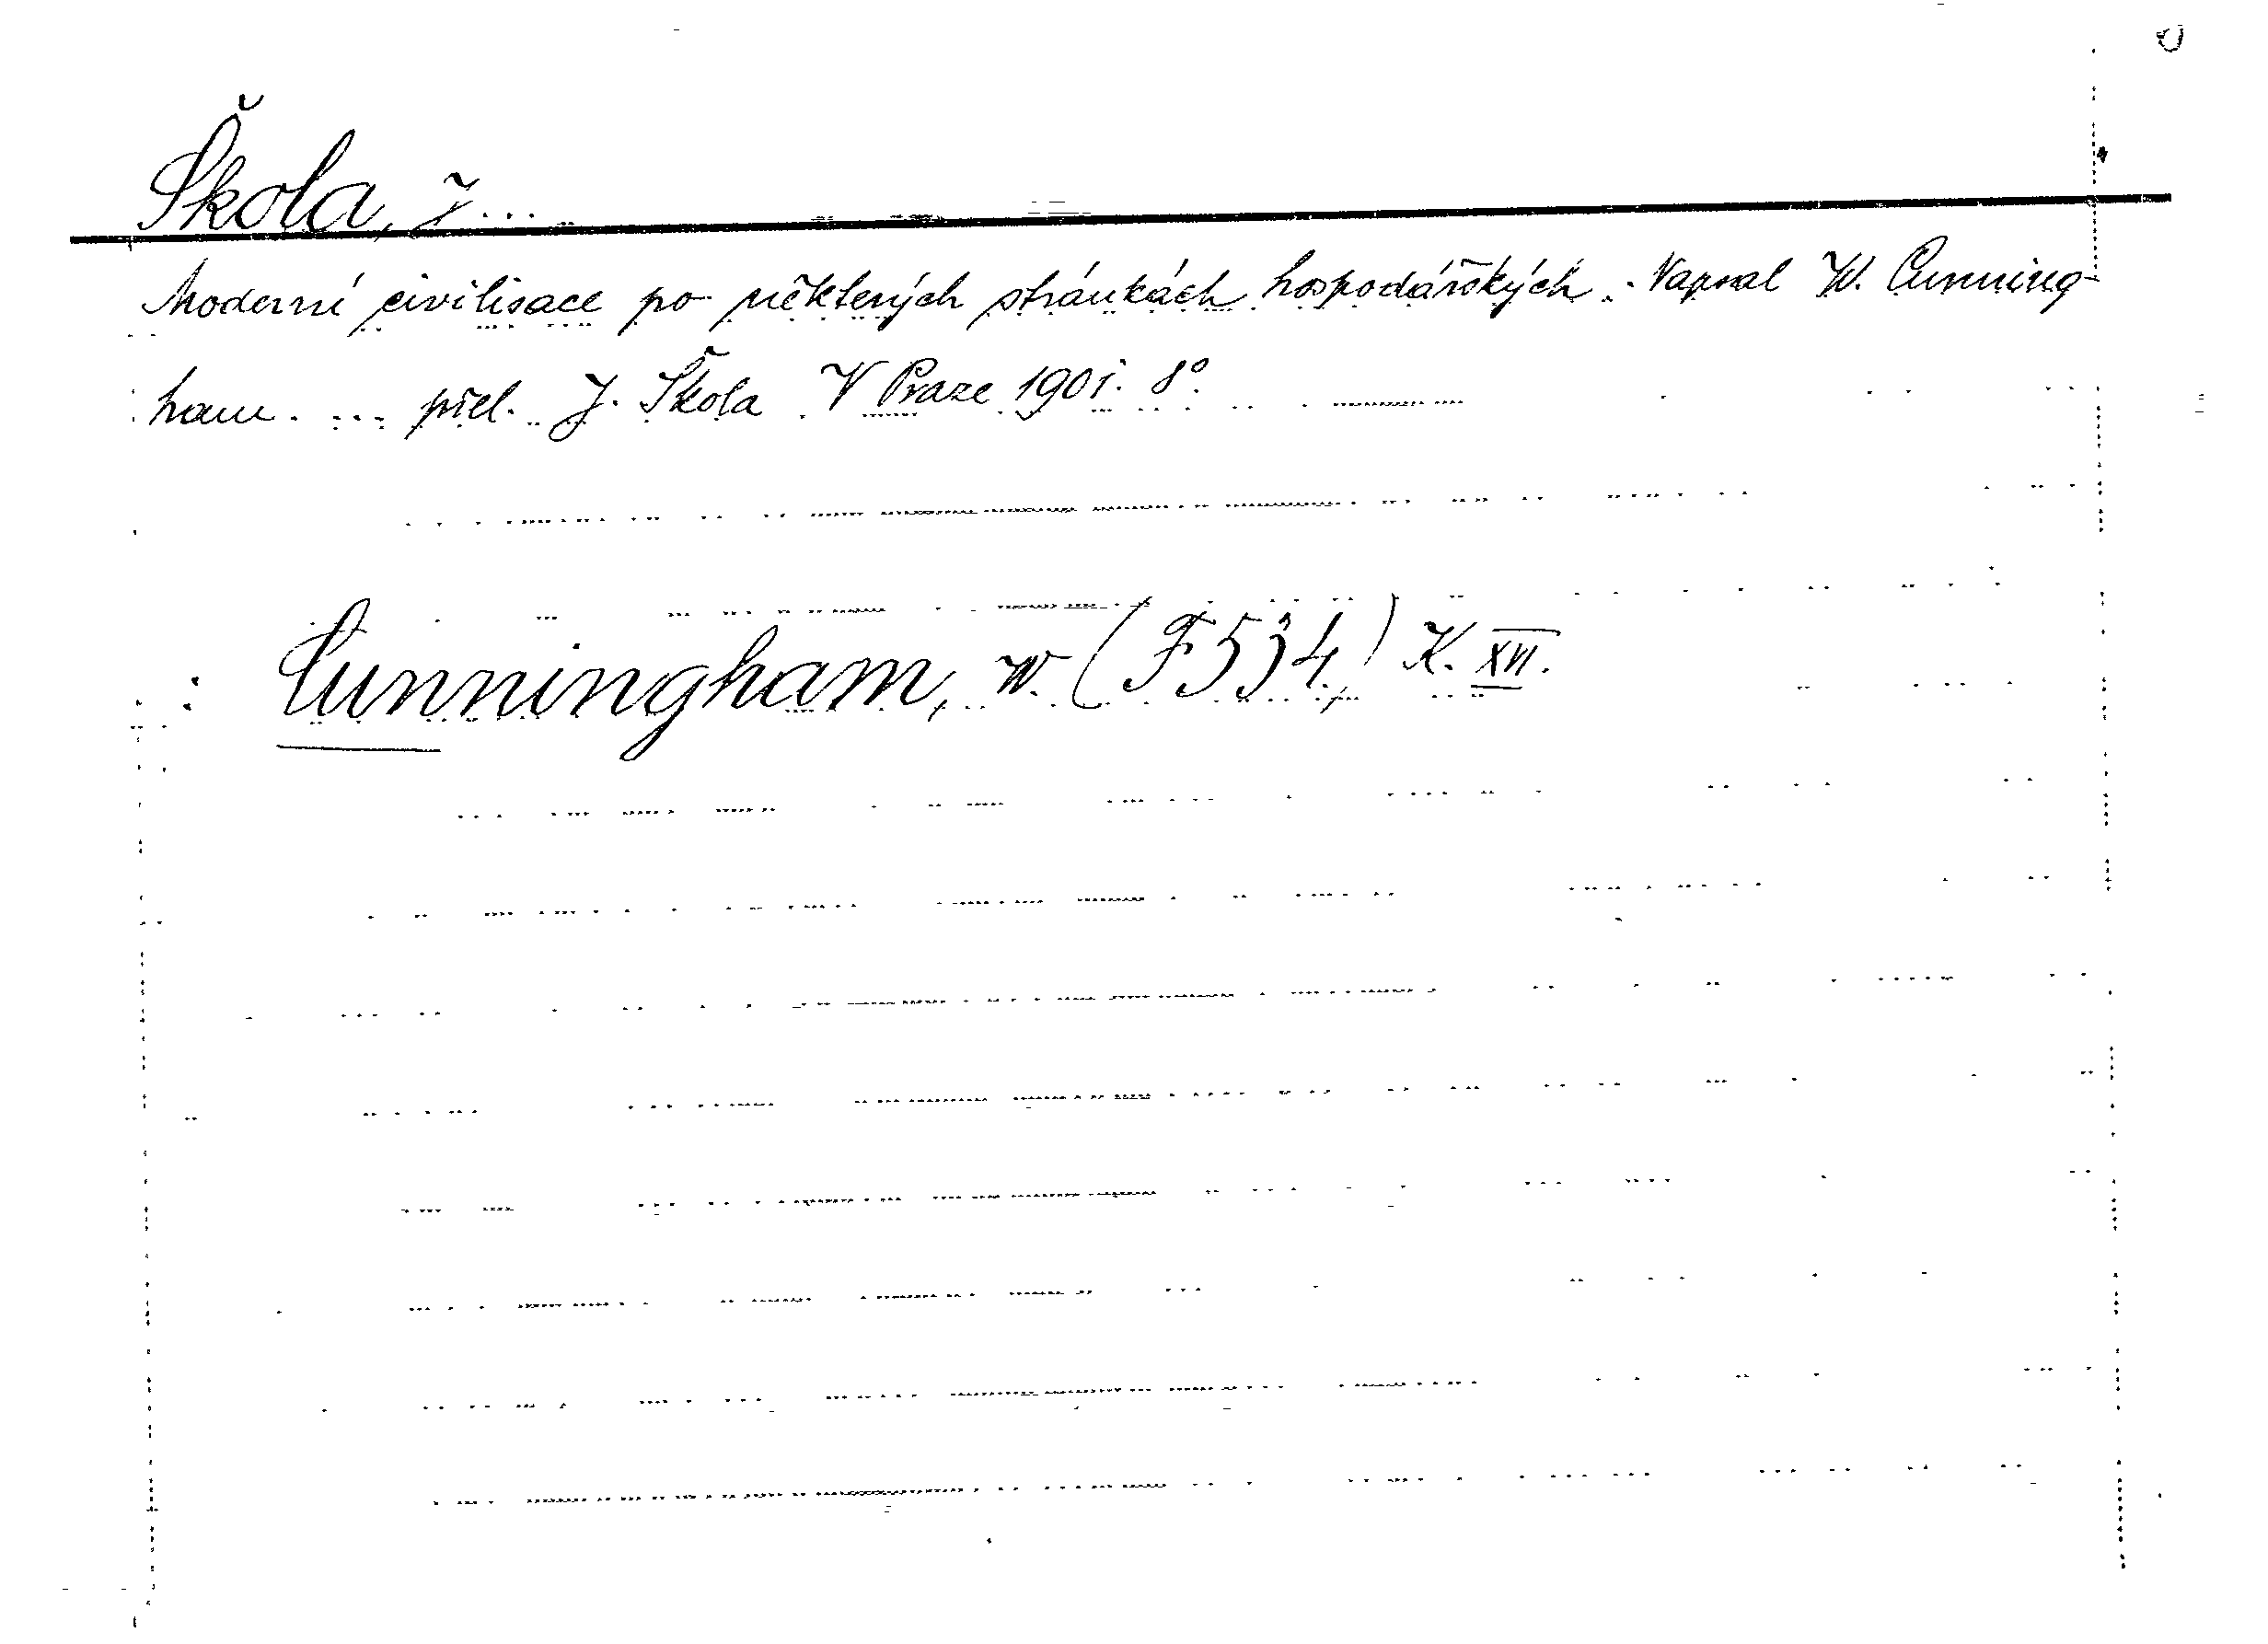 Škola, J...
Moderní civilisace po některých stránkách hospodářských. Napsal W. Cunning-
ham. ... přel. J. Škola V Praze 1901. 8°.
: Cunningham, W. (F 534) K. XVI.